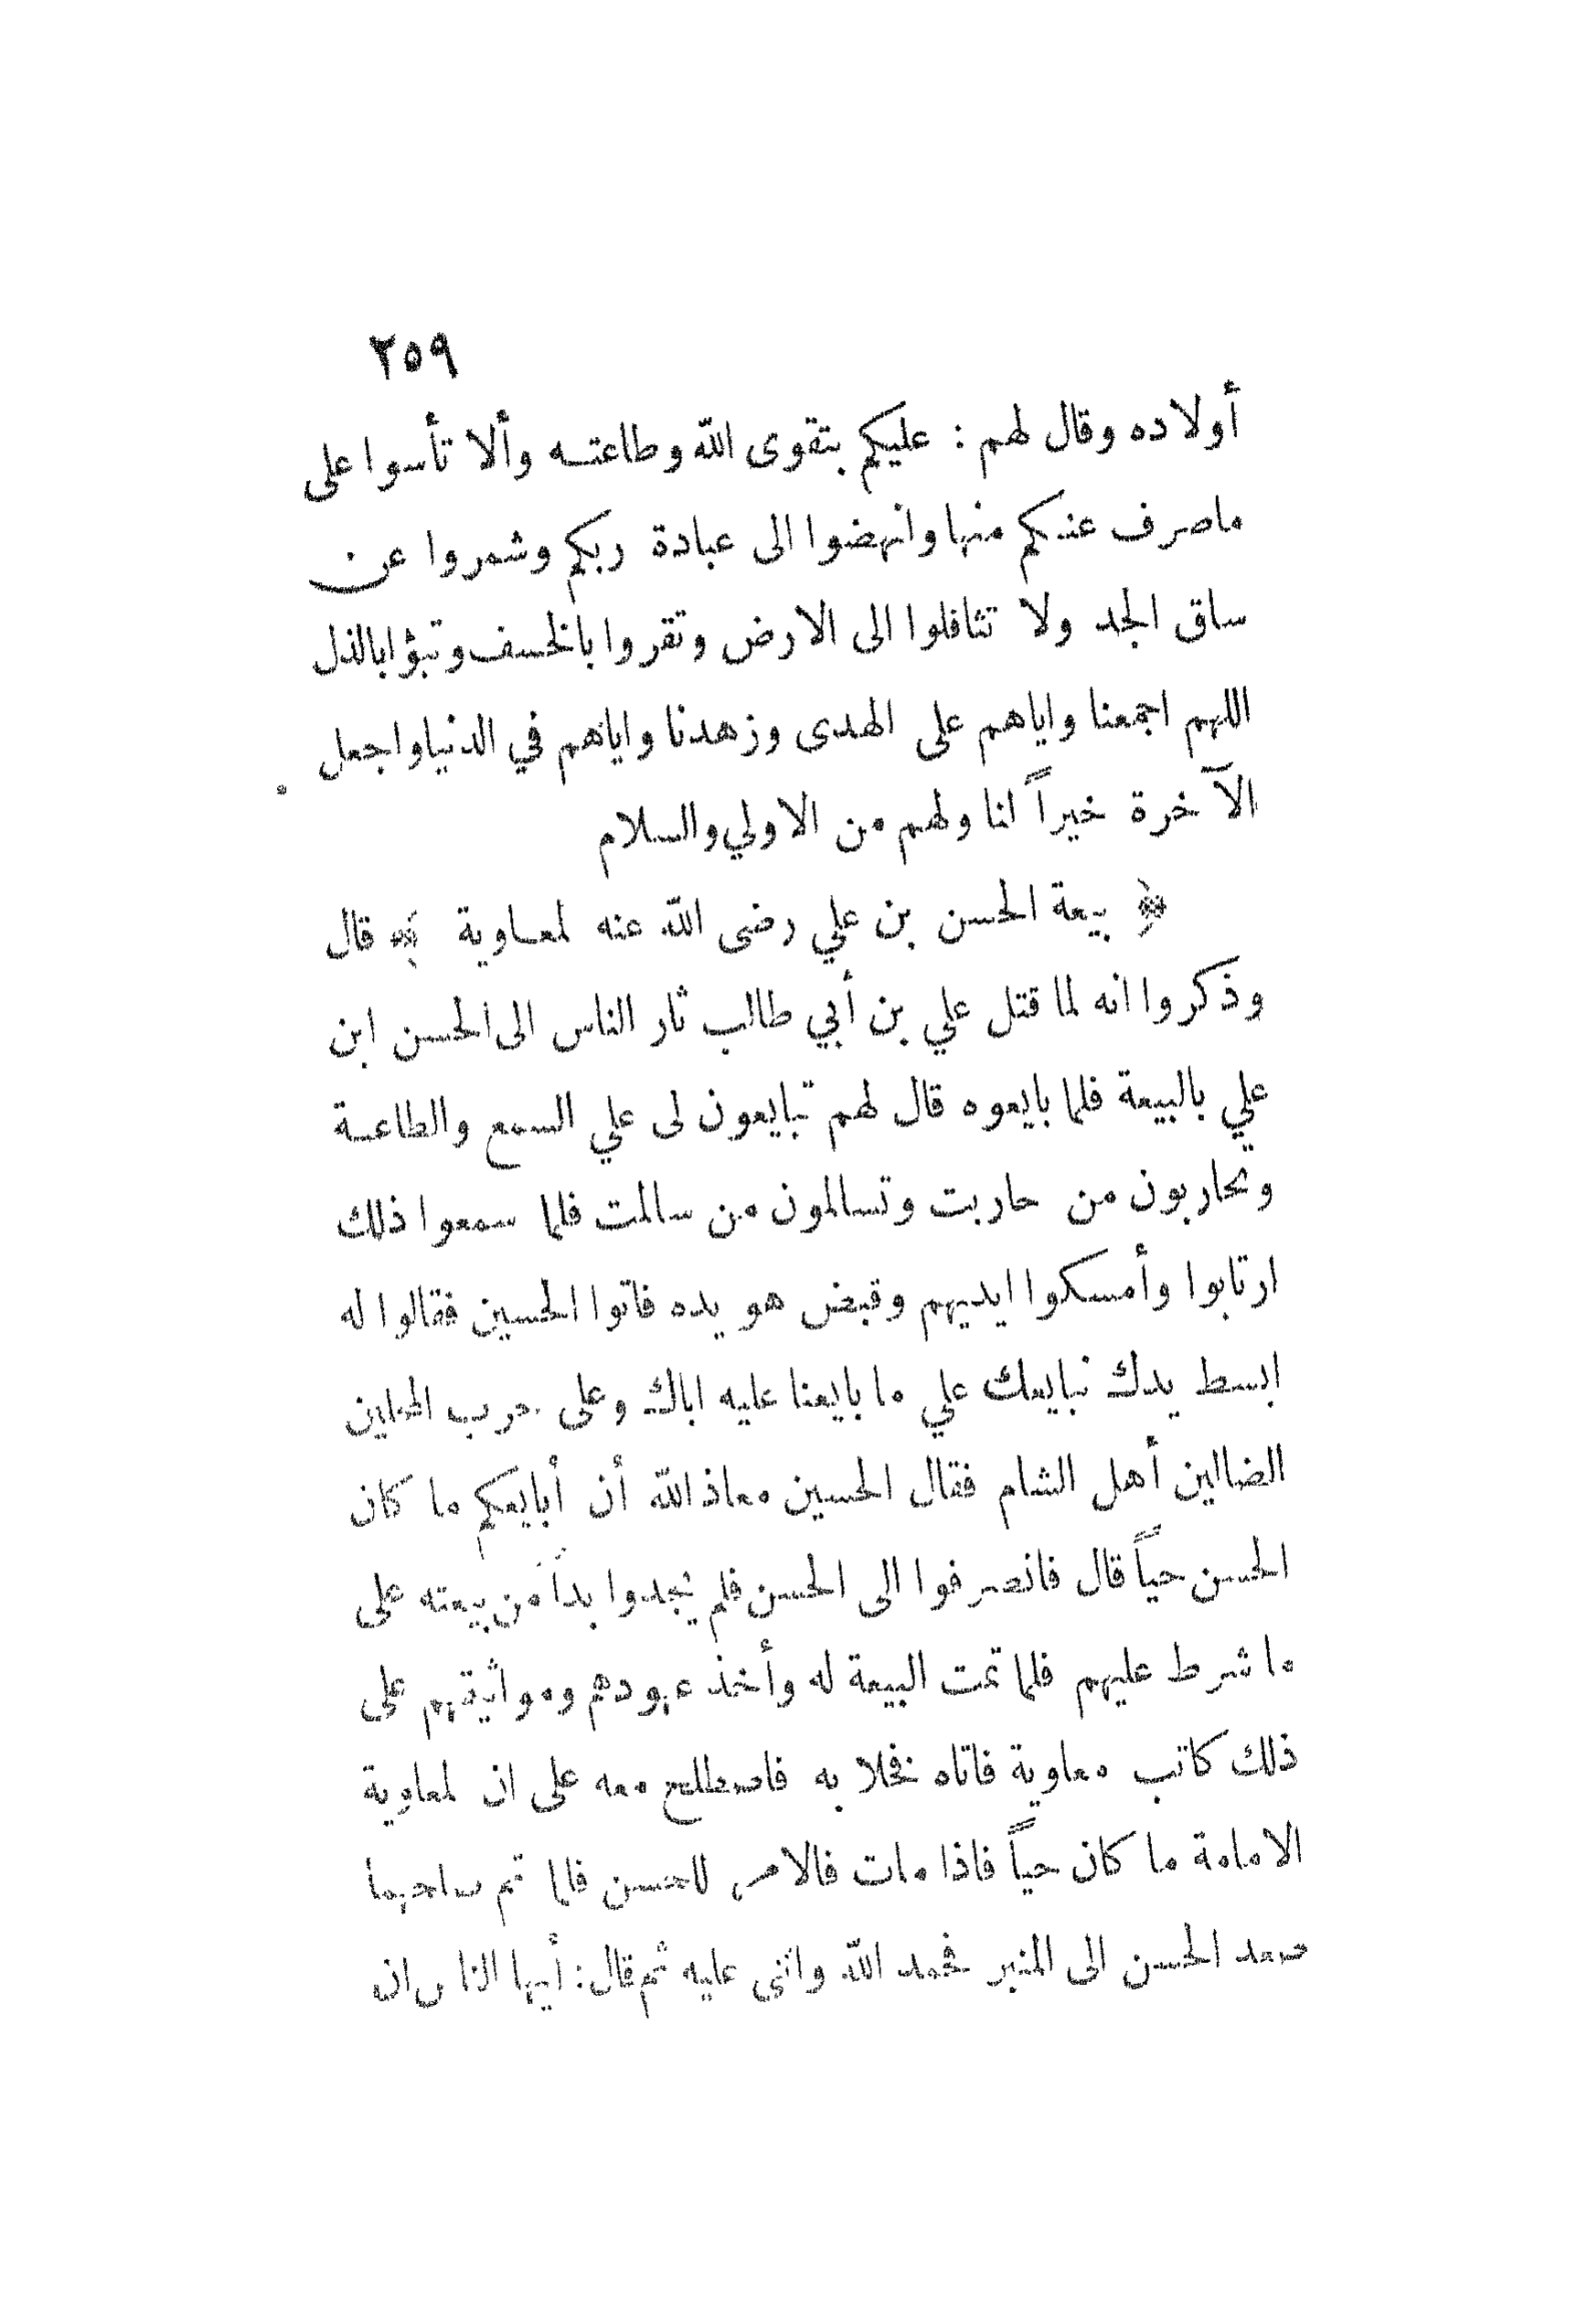 ٢٥٩
أولاده وقال لهم : عليكم بتقوى الله وطاعته وألا تأسوا على
ماصرف عنكم منها وانهضوا الى عبادة ربكم وشمروا عن
ساق الجد ولا تثاقلوا الى الارض وتقروا بالخسف وتبؤا بالذل
اللهم اجمعنا واياهم على الهدى وزهدنا واياهم في الدنيا واجعل
الآخرة خيراً لنا ولهم من الاولي والسلام
﴿ بيعة الحسن بن علي رضى الله عنه لمعاوية ﴾ قال
وذكروا انه لما قتل علي بن أبي طالب ثار الناس الى الحسن ابن
علي بالبيعة فلما بايعوه قال لهم تبايعون لى علي السمع والطاعة
وتحاربون من حاربت وتسالمون من سالمت فلما سمعوا ذلك
ارتابوا وأمسكوا ايديهم وقبض هو يده فاتوا الحسين فقالوا له
ابسط يدك نبايعك علي ما بايعنا عليه اباك وعلى حرب المحلين
الضالين أهل الشام فقال الحسين معاذ الله أن أبايعكم ما كان
الحسن حياً قال فانصرفوا الى الحسن فلم يجدوا بداً من بيعته على
ما شرط عليهم فلما تمت البيعة له وأخذ عهودهم ومواثيقهم على
ذلك كاتب معاوية فاتاه فخلا به فاصطلح معه على ان لمعاوية
الامامة ما كان حياً فاذا مات فالامر للحسن فلما تم صلحهما
صعد الحسن الى المنبر فحمد الله واثنى عليه ثم قال : أيها الناس ان